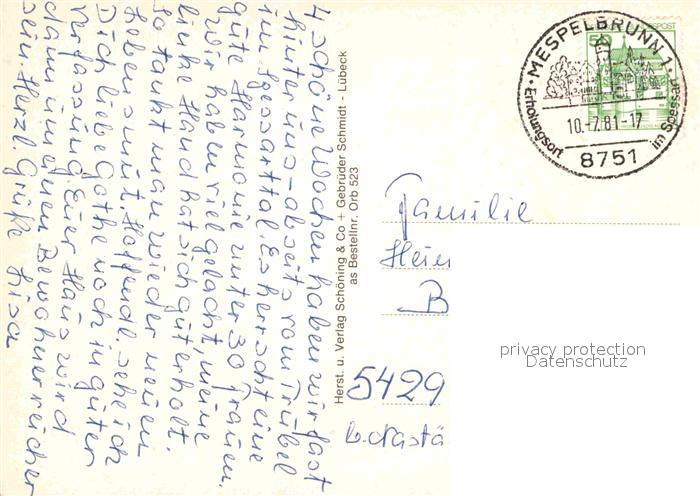 4 schöne Wochen haben wir fast
hinter uns - abseits vom Trubel
im Spessarttal. Es herrscht eine
gute Harmonie unter 30 Frauen.
Wir haben viel gelacht, meine
linke Hand hat sich gut erholt.
So tankt man wieder neuen
Lebensmut. Hoffendl. sehe ich
Dich liebe Gothe noch in guter
Verfassung. Euer Haus wird
dann um einen Bewohner reicher
sein. Herzl. Grüße Lisa
Herst. u. Verlag Schöning & Co + Gebrüder Schmidt - Lübeck
as Bestellnr. Orb 523
50
MESPELBRUNN 1
10.-7.81-17
Erholungsort
im Spessart
8751
Familie
Hein
B
5429
b. Nastä
privacy protection
Datenschutz